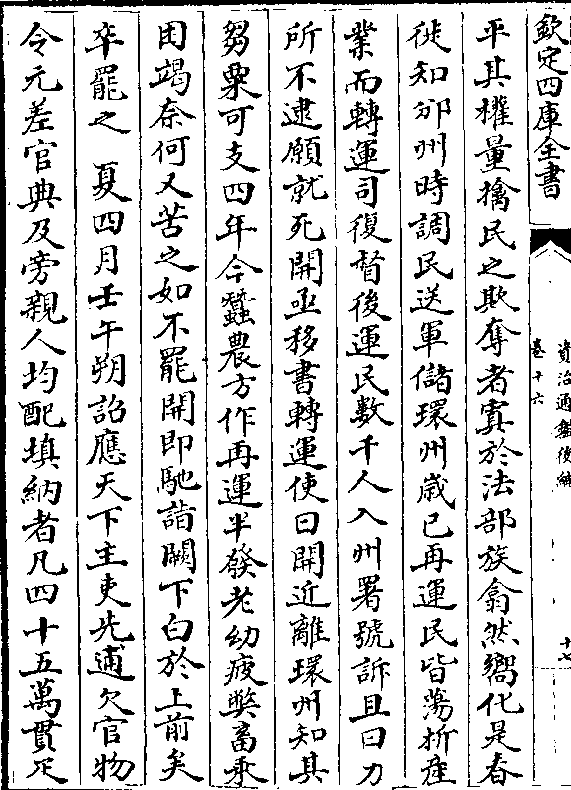 欽定四庫全書
資治通鑑後編
卷十六
十七
平其權量擒民之欺奪者寘於法部族翕然嚮化是春
徙知邠州時調民送軍儲環州歲已再運民皆蕩析產
業而轉運司復督後運民數千人入州署號訴且曰力
所不逮願就死開亟移書轉運使曰開近離環州知其
芻粟可支四年今蠶農方作再運半發老幼疲弊畜乘
困竭奈何又苦之如不罷開即馳詣闕下白於上前矣
卒罷之　夏四月壬午朔詔應天下主吏先逋欠官物
令元差官典及旁親人均配填納者凡四十五萬貫疋